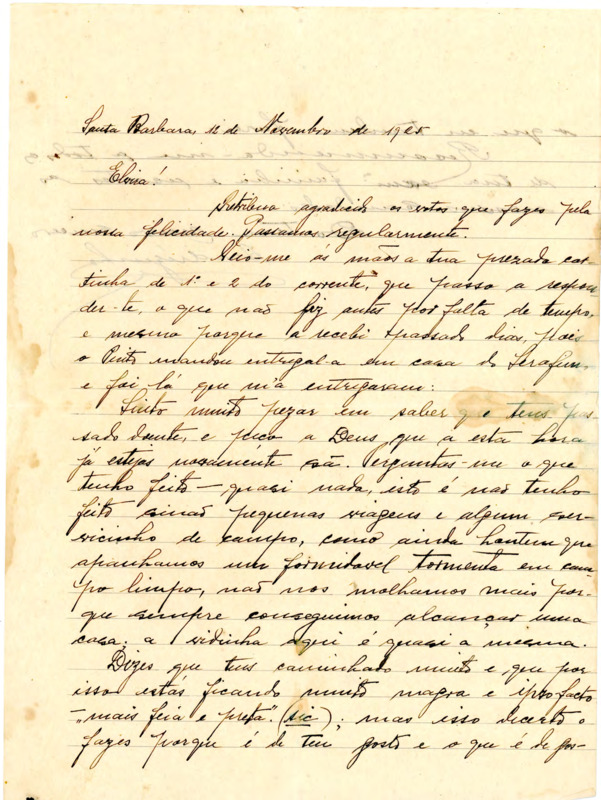 Santa Barbara, 12 de Novembro de 1925
Elvira!
Retribuo agradecido os votos que fazes pela
nossa felicidade. Passamos regularmente.
Veio-me ás mãos a tua prezada car-
tinha de 1º e 2 do corrente, que passo a respon-
der-te, o que não fiz antes por falta de tempo,
e mesmo porque a recebi passado dias, pois
o Pinto mandou entregal-a em casa do Serafim,
e foi lá que m'a entregaram.
Sinto muito pezar em saber que tens pas-
sado doente, e peço a Deus que a esta hora
já estejas novamente sã. Perguntas-me o que
tenho feito — quasi nada, isto é não tenho
feito sinão pequenas viagens e algum ser-
vicinho de campo, como ainda hontem que
apanhamos um formidavel tormenta em cam
po limpo, não nos molhamos mais por-
que sempre conseguimos alcançar uma
casa; a vidinha aqui é quasi a mesma.
Dizes que tens caminhado muito e que por
isso estás ficando muito magra e ipso facto
— "mais feia e preta". (sic); mas isso decerto o
fazes porque é de teu gosto e o que é de gos-